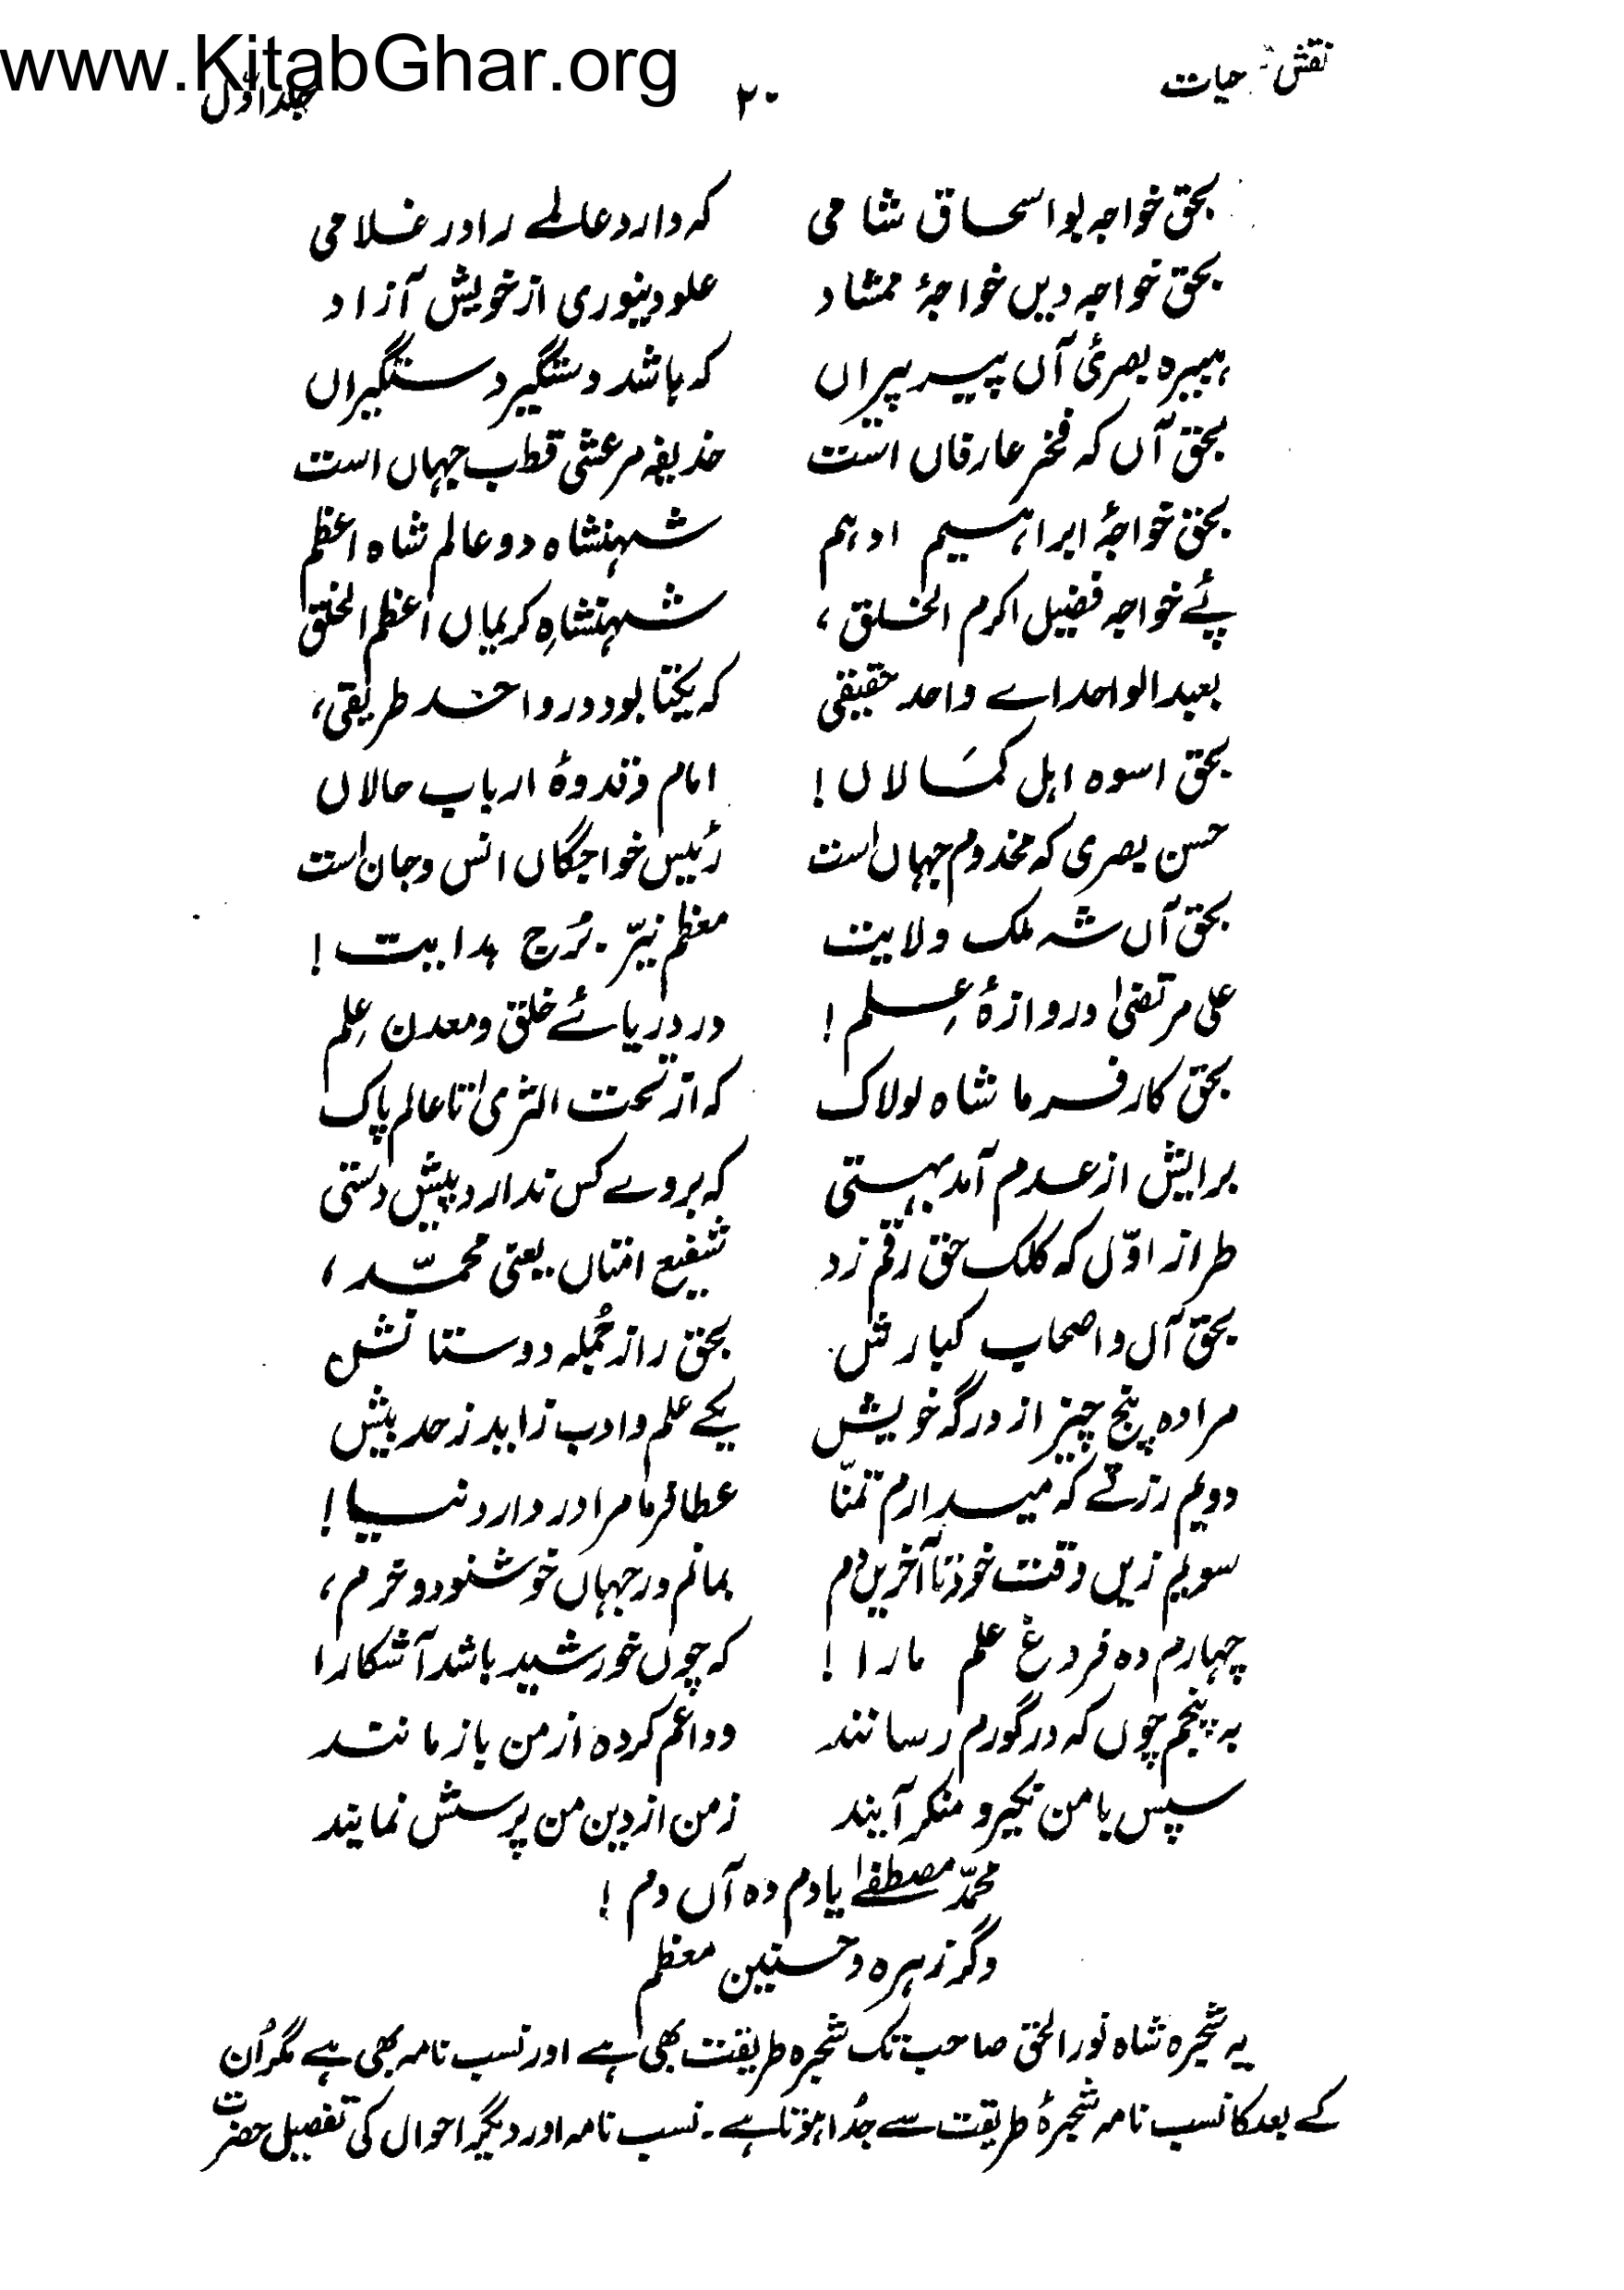 www.KitabGhar.org
نقش حیات ۲۰ جلد اوّل
بحق خواجہ بو اسحاق شامی کہ دارد عالمے را در غلامی
بحق خواجہ دیں خواجۂ ممشاد علو دینوری از خویش آزاد
ہبیرہ بصریٔ آں پیر پیراں کہ باشد دستگیر دستگیراں
بحق آں کہ فخر عارفاں است حذیفہ مرعشی قطب جہاں است
بحق خواجۂ ابراہیم ادہم شہنشاہ دو عالم شاہ اعظم
پئے خواجہ فضیل اکرم الخلق، شہنشاہِ کریماں اعظم الخلق
بعبد الواحد اے واحد حقیقی کہ یکتا بود در واحد طریقی،
بحق اسوہ اہل کمَالاں! امام و قدوۂ ارباب حالاں
حسن بصری کہ مخدوم جہاں است رئیس خواجگاں انس و جان است
بحق آں شہ ملک ولایت معظم نیّر بُرج ہدایت!
علی مرتضیٰ دروازۂ عِلم! در دریائے خلق و معدن عِلم
بحق کار فرما شاہ لولاک کہ از تحت الثریٰ تا عالم پاک
برایش از عدم آمد بہستی کہ بروے کس ندارد پیش دستی
طراز اوّل کہ کلک حق رقم زد شفیع امتاں یعنی محمّد،
بحق آل و اصحاب کبارش بحق راز جُملہ دوستانش
مرا دہ پنج چیز از درگہ خویش یکے علم و ادب زاید ز حد بیش
دویم رزقے کہ میدارم تمنّا عطا فرما مرا در دار دنیا!
سویم زیں وقت خود تا آخریں دم بمانم در جہاں خوشنود و خرم،
چہارم دہ فروغ علم مارا! کہ چوں خورشید باشد آشکارا
بہ پنجم چوں کہ در گورم رسانند وداعم کردہ از من باز مانند
سپس با من نکیر و منکر آیند ز من از دین من پرسش نمایند
محمّد مصطفےٰ یادم دہ آں دم!
دگر زہرہ و حسنین معظم
یہ شجرہ شاہ نور الحق صاحب تک شجرہ طریقت بھی ہے اور نسب نامہ بھی ہے مگر اُن
کے بعد کا نسب نامہ شجرۂ طریقت سے جُدا ہوتا ہے۔ نسب نامہ اور دیگر احوال کی تفصیل حضرت